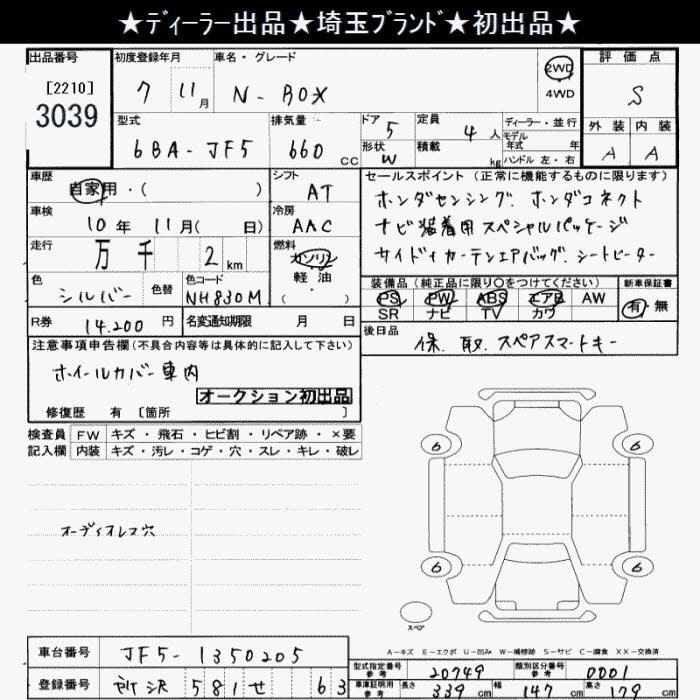 ★ディーラー出品★埼玉ブランド★初出品★
出品番号 初度登録年月 車名・グレード 評価点
[2210]
3039
7 11月 N-BOX 2WD 4WD S
型式 排気量 ドア 定員 ディーラー・並行 外装 内装
6BA-JF5 660cc 5 4人 モデル年式 年 A A
形状 W 積載 kg ハンドル 左・右
車歴 シフト セールスポイント(正常に機能するものに限ります)
自家用・( ) AT ホンダセンシング. ホンダコネクト
車検 冷房 ナビ装着用スペシャルパッケージ
10年 11月( 日) AAC サイド・カーテンエアバッグ. シートヒーター
走行 燃料
万 千 2km ガソリン
軽・油
( )
色 色替 色コード 装備品(純正品に限り○をつけてください) 新車保証書
シルバー NH830M PS PW ABS エアB AW 有・無
SR ナビ TV カワ
R券 14.200円 名変通知期限 月 日 後日品
保. 取. スペアスマートキー
注意事項申告欄(不具合内容等は具体的に記入して下さい)
ホイールカバー車内
オークション初出品
修復歴 有[箇所 ]
検査員 FW キズ・飛石・ヒビ割・リペア跡・×要
記入欄 内装 キズ・汚レ・コゲ・穴・スレ・キレ・破レ
6 6
オーディオレス穴
6 6
スペア
A-キズ E-エクボ U-凹み W-補修跡 S-サビ C-腐食 XX-交換済
車台番号 JF5-1350205
型式指定番号 参考 20749 類別区分番号 参考 0001
登録番号 所沢 581 せ 63
車庫証明用 参考 長さ 339cm 幅 147cm 高さ 179cm